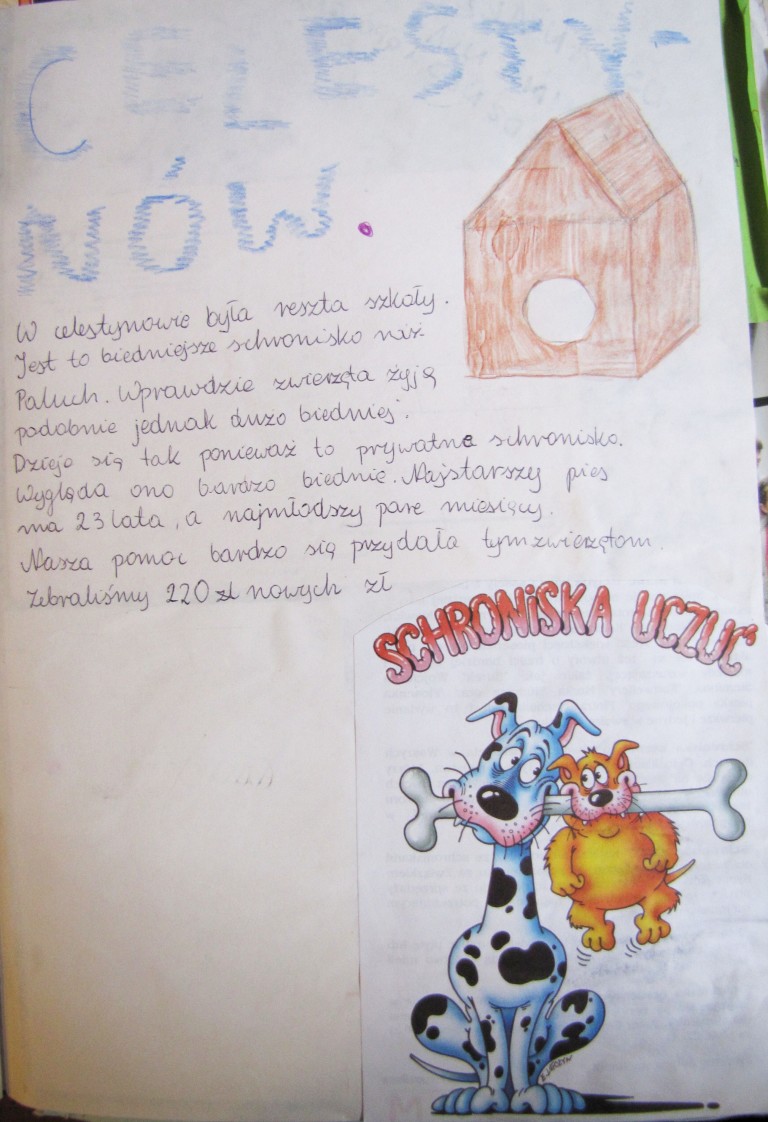 CELESTY-
NÓW.
W celestynowie była reszta szkoły.
Jest to biedniejsze schronisko niż
Paluch. Wprawdzie zwierzęta żyją
podobnie jednak dużo biedniej.
Dzieje się tak ponieważ to prywatne schronisko.
Wygląda ono bardzo biednie. Najstarszy pies
ma 23 lata, a najmłodszy pare miesięcy.
Nasza pomoc bardzo się przydała tym zwierzętom.
Zebraliśmy 220 zł nowych zł
SCHRONiSKA UCZUĆ